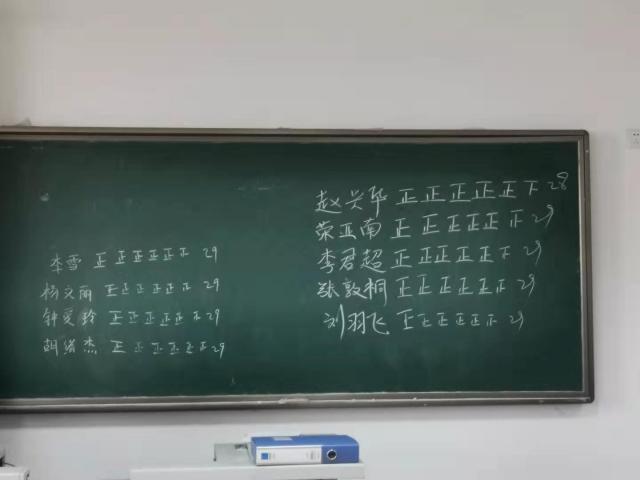 李雪 正正正正正正 29
杨文丽 正正正正正正 29
钟爱玲 正正正正正正 29
胡绪杰 正正正正正正 29
赵兴华 正正正正正下 28
荣亚南 正正正正正正 29
李君超 正正正正正正 29
张敦桐 正正正正正正 29
刘羽飞 正正正正正正 29